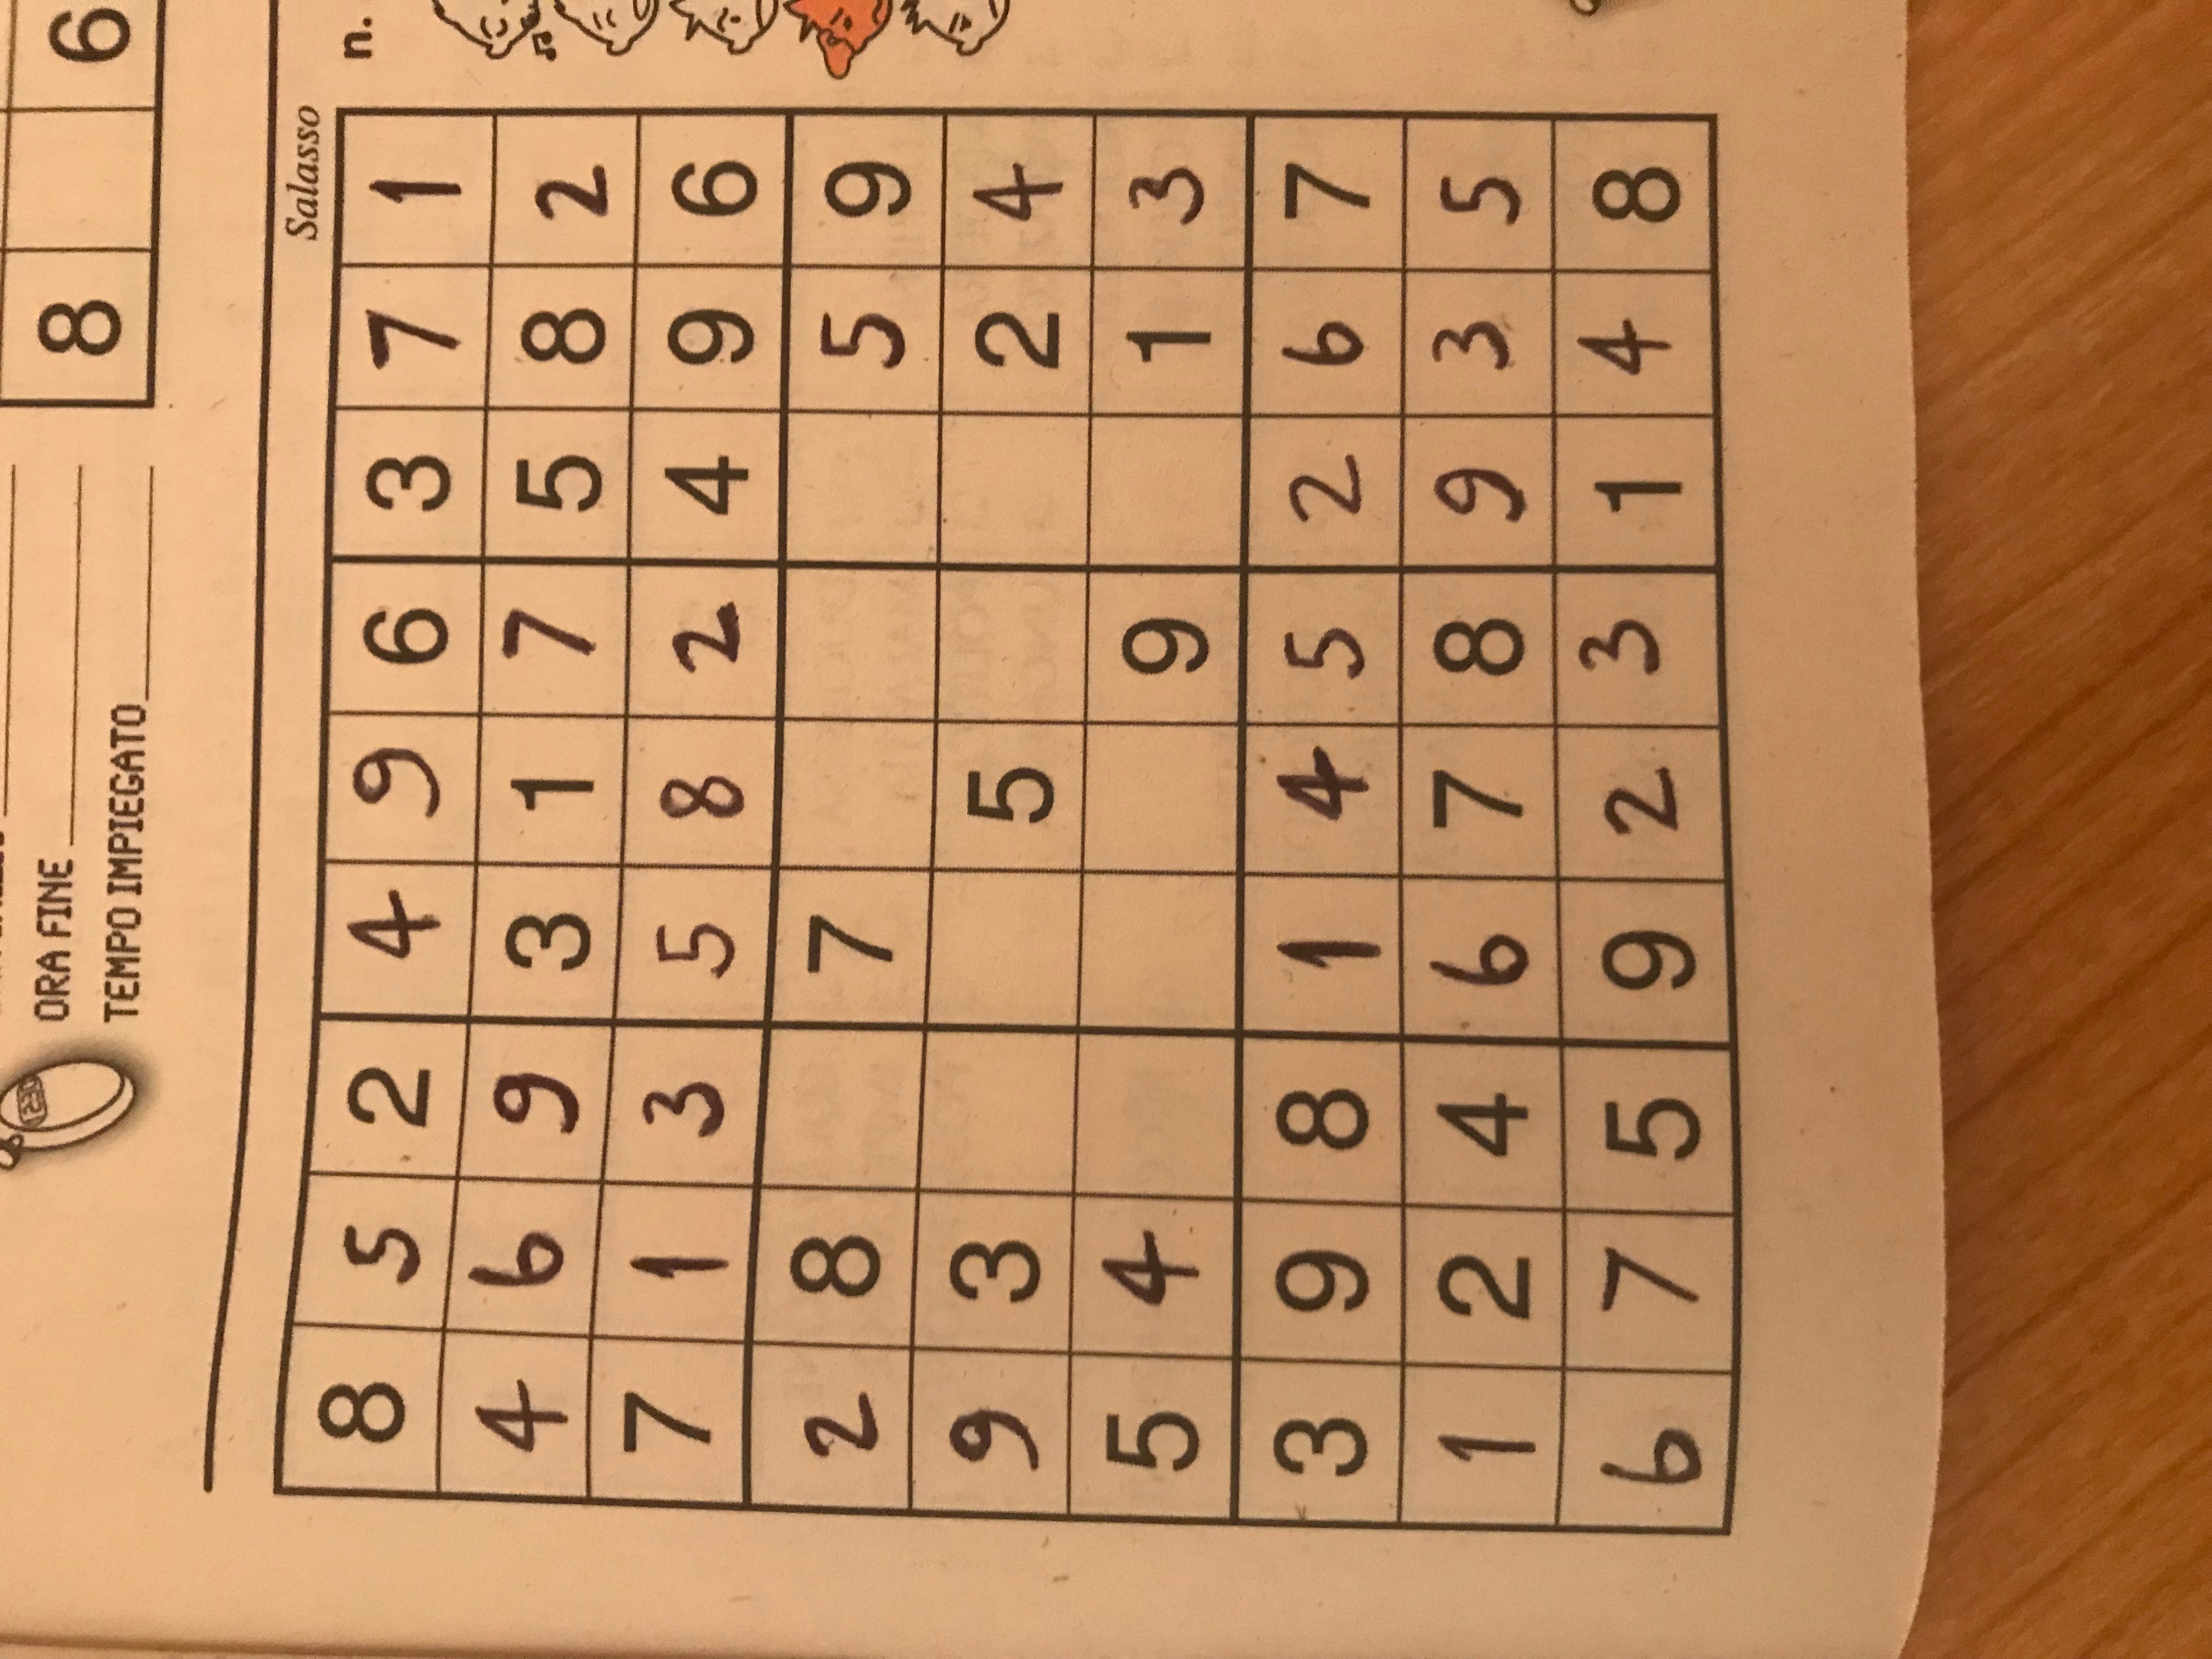 ORA FINE
TEMPO IMPIEGATO
8 6
Salasso
n.
8 5 2 4 9 6 3 7 1
4 6 9 3 1 7 5 8 2
7 1 3 5 8 2 4 9 6
2 8 7 5 9
9 3 5 2 4
5 4 9 1 3
3 9 8 1 4 5 2 6 7
1 2 4 6 7 8 9 3 5
6 7 5 9 2 3 1 4 8